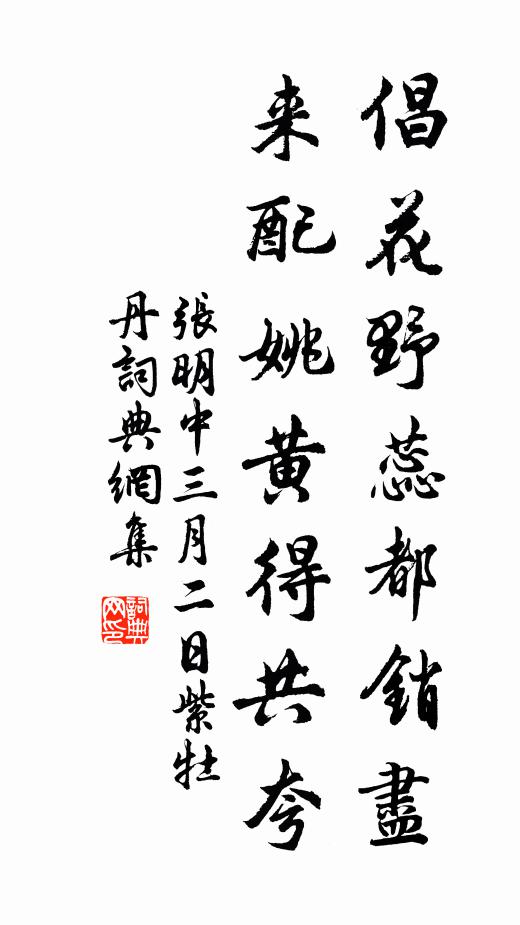 倡花野蕊都銷盡
来配姚黄得共夸
張明中三月二日紫牡
丹詞典網集
詞典
网印